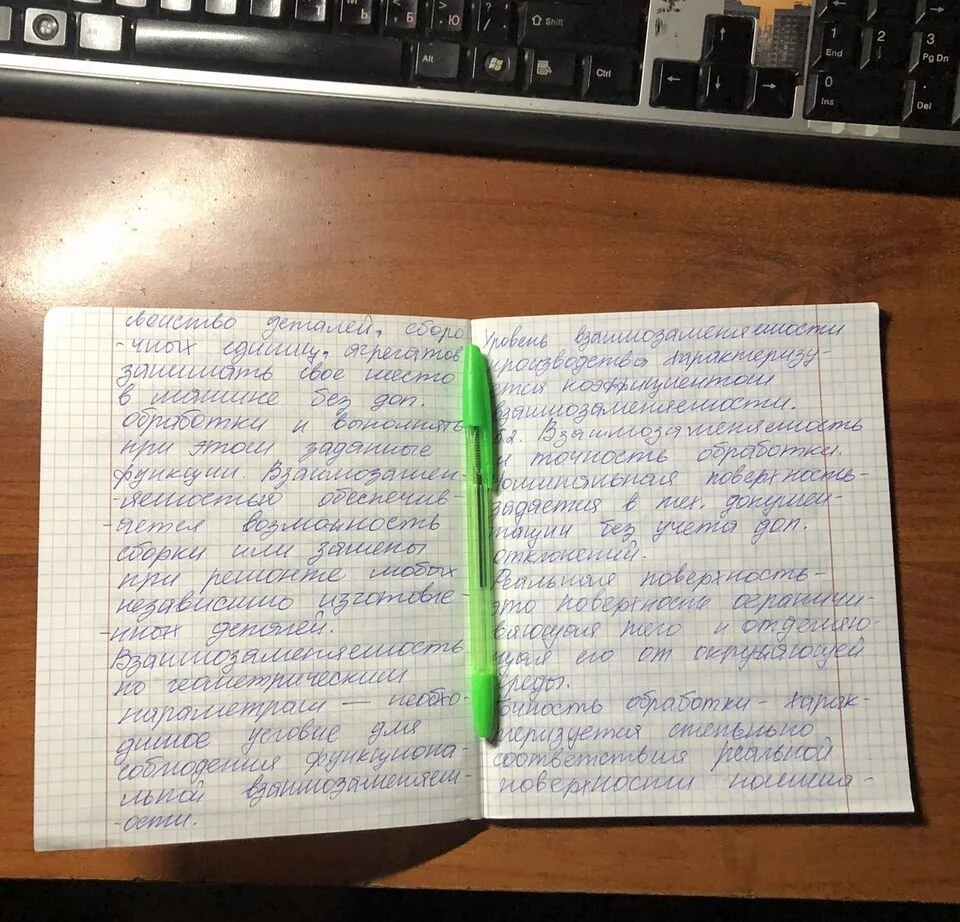 Ю
Б
Ь
Shift
Alt
Ctrl
1
End
2
3
Pg Dn
0
Ins
.
Del
свойство деталей, сборо
-чных единиц, агрегатов
занимать свое место
в машине без доп.
обработки и выполнять
при этом заданные
функции. Взаимозамен-
-яемостью обеспечив-
-ается возможность
сборки или замены
при ремонте любых
независимо изготовле-
-нных деталей.
Взаимозаменяемость
по геометрическим
параметрам — необхо-
димое условие для
соблюдения функциона-
льной взаимозаменяем-
-ости.
Уровень взаимозаменяемости
производства характеризу-
ется коэффициентом
взаимозаменяемости.
2. Взаимозаменяемость
и точность обработки.
Номинальная поверхность-
задается в тех. докумен-
тации без учета доп.
отклонений.
Реальная поверхность-
это поверхность ограничи-
вающая тело и отделяю-
щая его от окружающей
среды.
Точность обработки - харак-
теризуется степенью
соответствия реальной
поверхности номина-